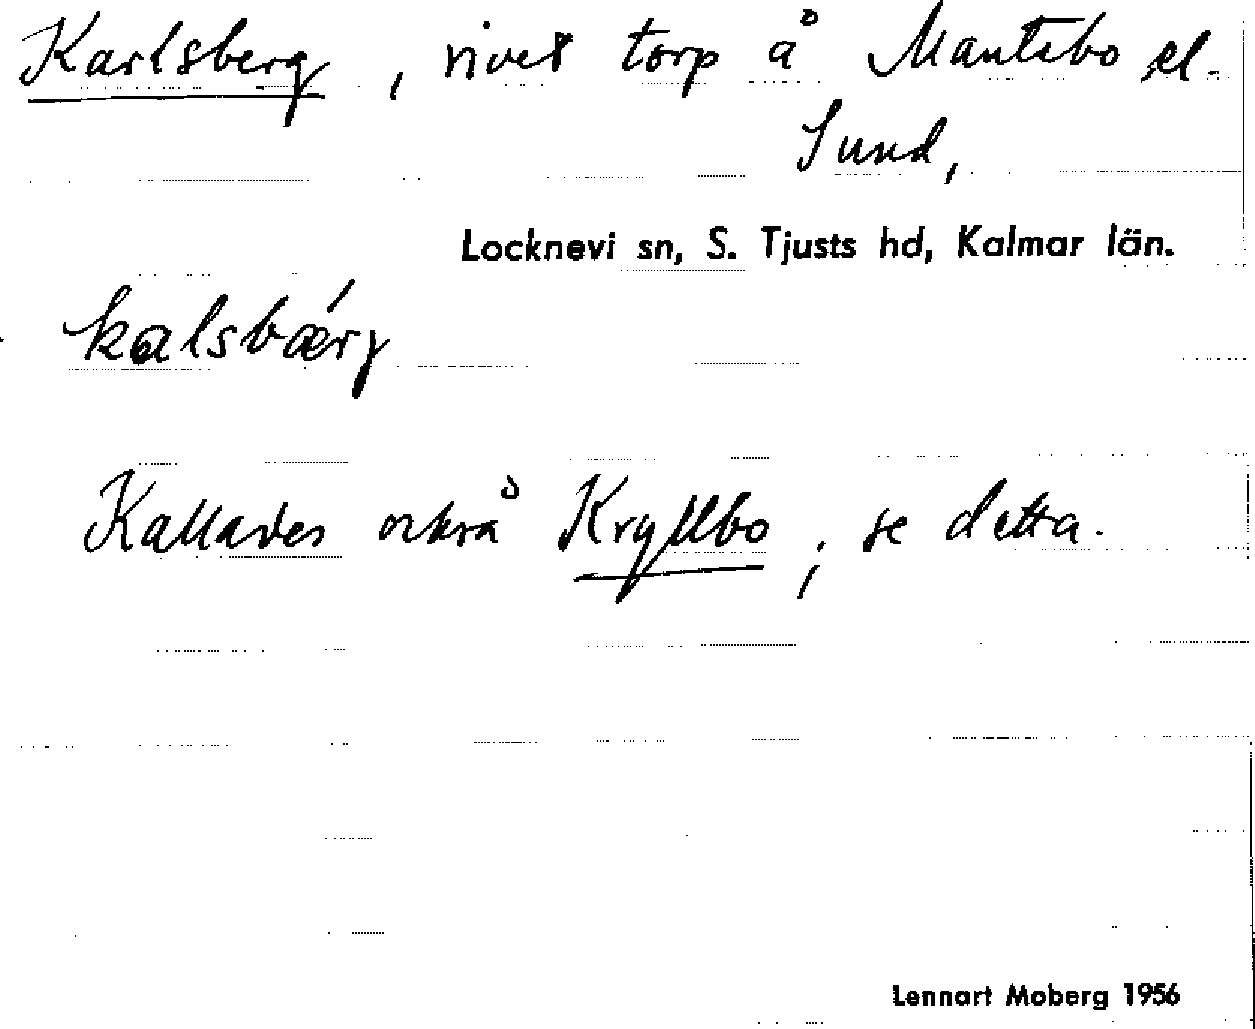 Karlsberg, rivet torp å Mantebo el.
Sund,
Locknevi sn, S. Tjusts hd, Kalmar län.
kalsbærj
Kallades också Kryllbo, se detta.
Lennart Moberg 1956